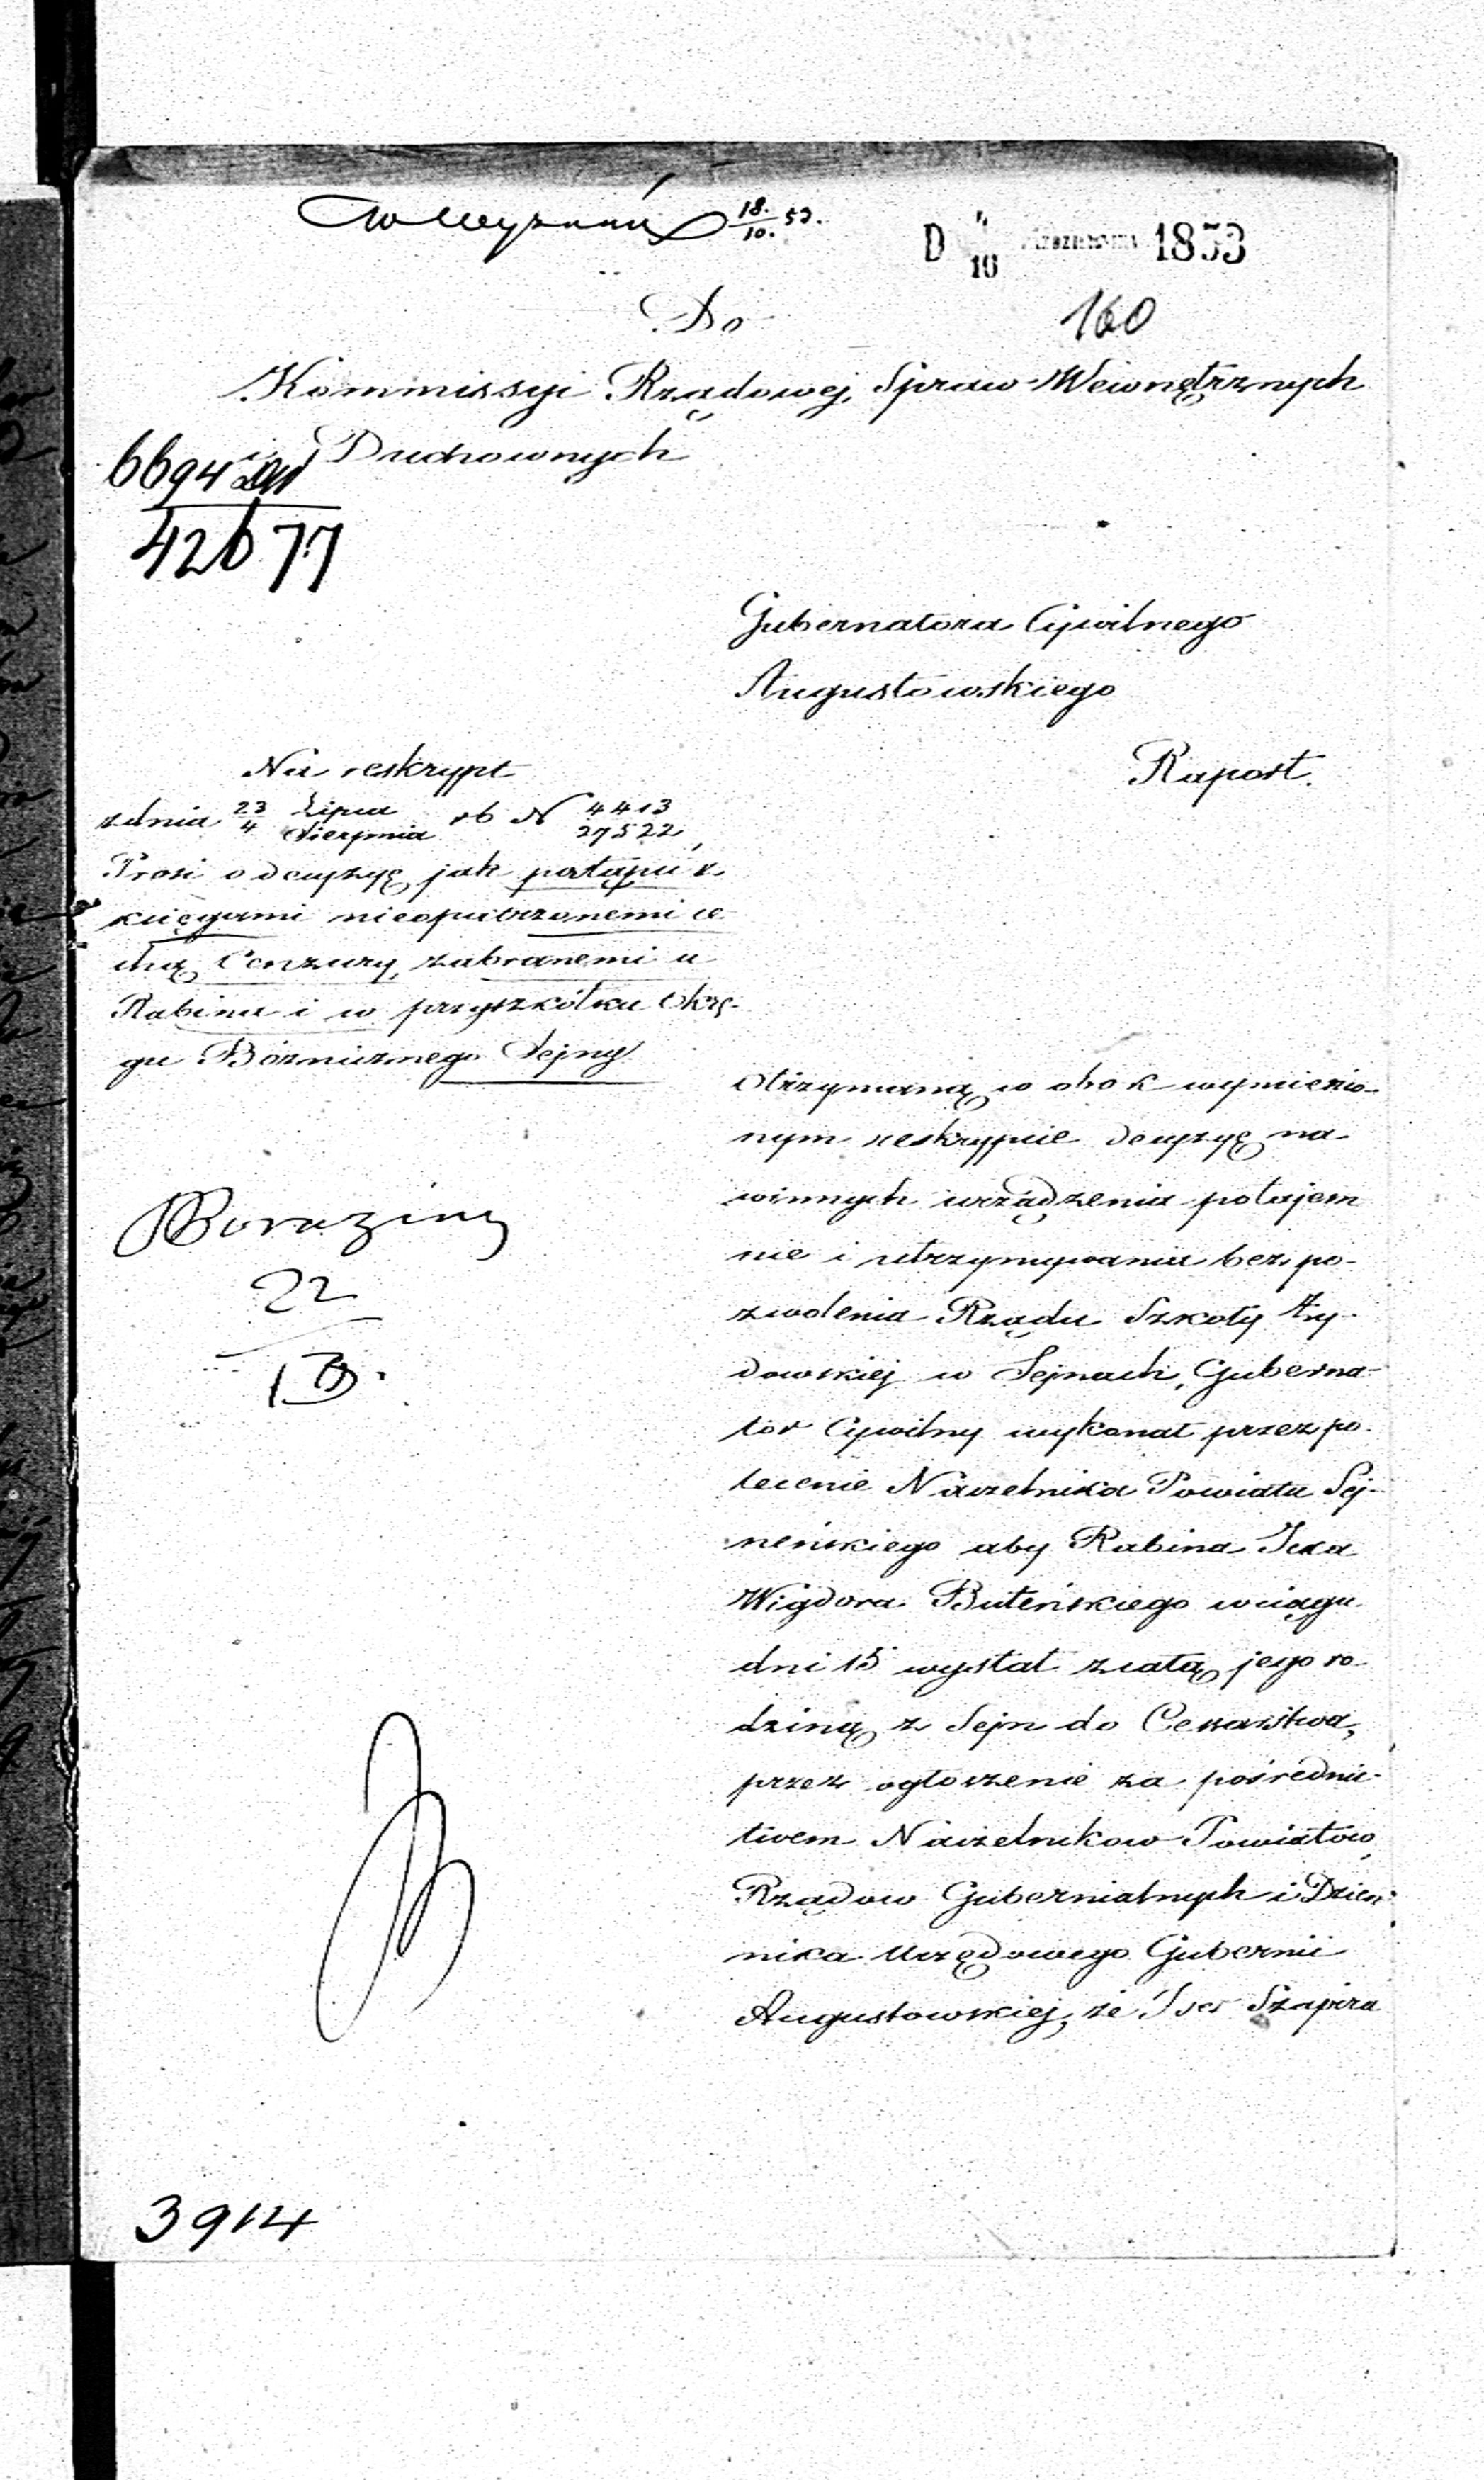 18./10. 53.
D 4/16 Października 1853
160
Do
Kommissyi Rządowej Spraw Wewnętrznych
i Duchownych
6694
42677
Gubernatora Cywilnego
Augustowskiego
Raport.
Na reskrypt
z dnia 23/4 Lipca/Sierpnia rb N 4413/27522,
Prosi o decyzyę jak postąpić z
księgami nieopatrzonemi ce-
chą Cenzury, zabranemi u
Rabina i w przyszkółku Okrę-
gu Bóżnicznego Sejny.
Otrzymaną w obok wymienio-
nym reskrypcie decyzyę na
winnych urządzenia potajem
nie i utrzymywania bez po-
zwolenia Rządu Szkoły Ży-
dowskiej w Sejnach, Guberna-
tor Cywilny wykonał przez po-
lecenie Naczelnika Powiatu Sej-
neńskiego aby Rabina
Wigdora Buteńskiego wciągu
dni 15 wysłał z całą jego ro-
dziną z Sejn do Cesarstwa,
przez ogłoszenie za pośrednic-
twem Naczelnikow Powiatów,
Rządow Gubernialnych i Dzien-
nika Urzędowego Gubernii
Augustowskiej, że Szapira
22
13.
3914